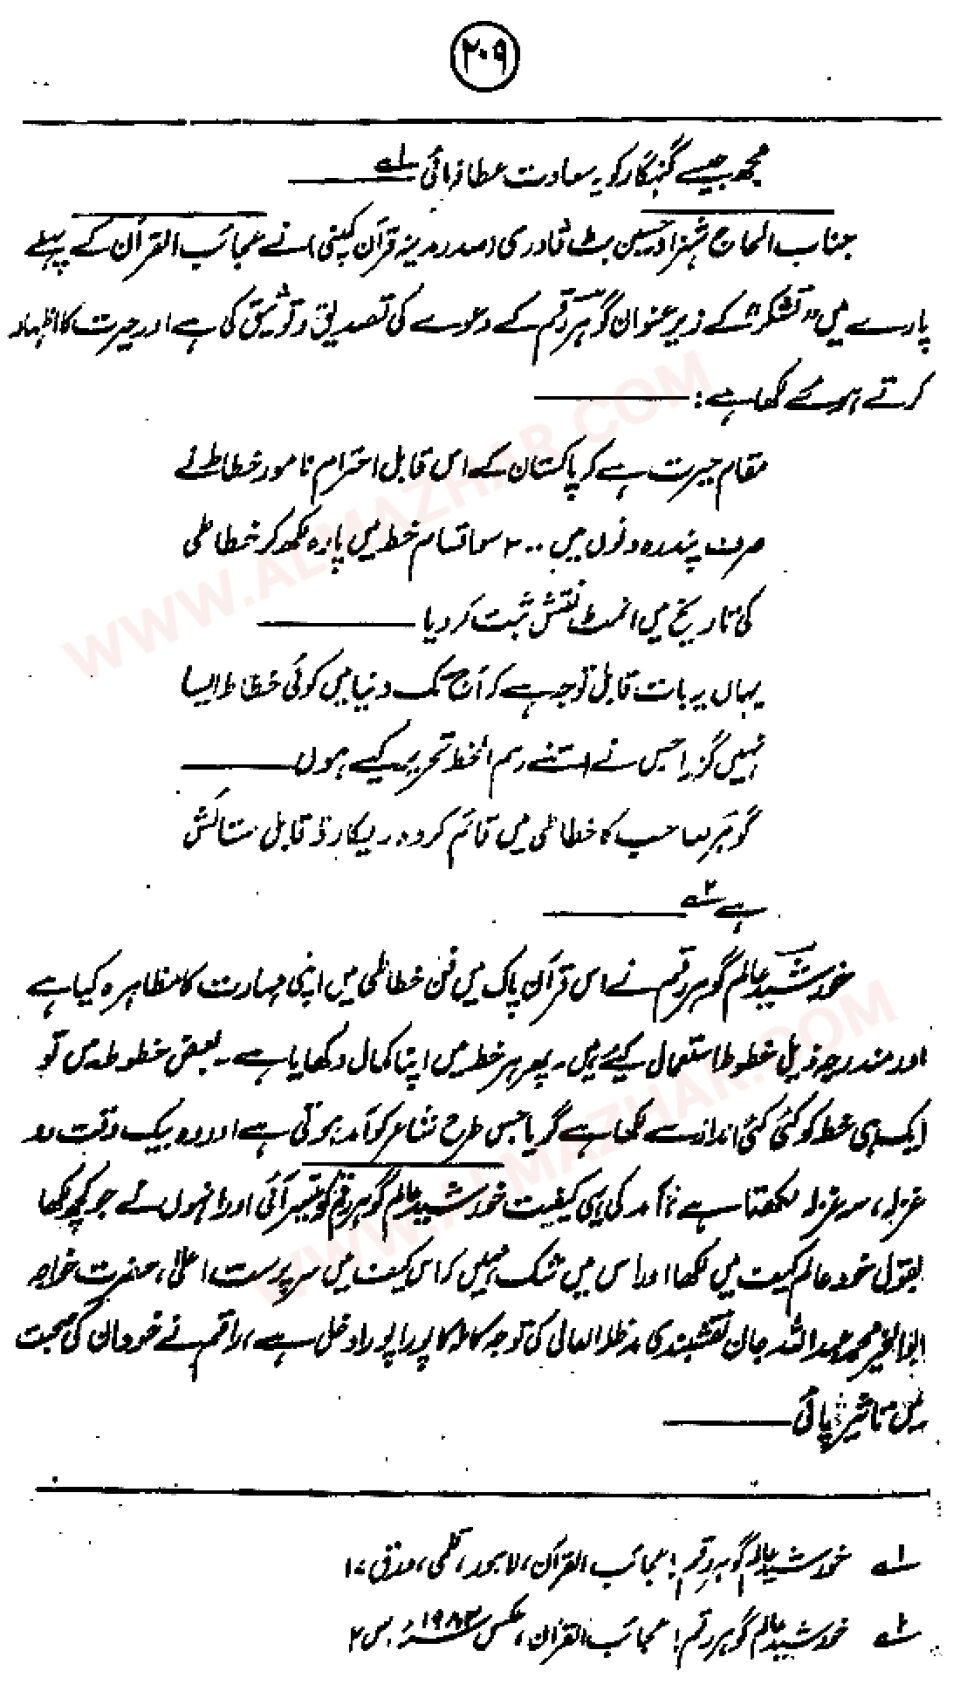 ۲۰۹
مجھ جیسے گنہگار کو یہ سعادت عطا فرمائی ۱ے
جناب الحاج شہزاد حسین بٹ قادری (صدر مدینہ قرآن کمپنی) نے عجائب القرآن کے پہلے
پارے میں "تشکر" کے زیر عنوان گوہر رقم کے دعوے کی تصدیق و توثیق کی ہے اور حیرت کا اظہار
کرتے ہوئے لکھا ہے :
مقام حیرت ہے کہ پاکستان کے اس قابل احترام نامور خطاط نے
صرف پندرہ دنوں میں ۲۰۰ سو اقسام خط میں پارہ لکھ کر خطاطی
کی تاریخ میں انمٹ نقش ثبت کر دیا
یہاں یہ بات قابل توجہ ہے کہ آج تک دنیا میں کوئی خطاط ایسا
نہیں گزرا جس نے اتنے رسم الخط تحریر کیے ہوں
گوہر صاحب کا خطاطی میں قائم کردہ ریکارڈ قابل ستائش
ہے ۲ے
خورشید عالم گوہر رقم نے اس قرآن پاک میں فن خطاطی میں اپنی مہارت کا مظاہرہ کیا ہے
اور مندرجہ ذیل خطوط استعمال کیے ہیں۔ پھر ہر خط میں اپنا کمال دکھایا ہے۔ بعض خطوط میں تو
ایک ہی خط کو کئی کئی انداز سے لکھا ہے گویا جس طرح شاعر کو آمد ہوتی ہے اور وہ بیک وقت دو
غزلہ، سہ غزلہ لکھتا ہے، آمد کی یہی کیفیت خورشید عالم گوہر رقم کو میسر آئی اور انہوں نے جو کچھ لکھا
بقول خود عالم کیف میں لکھا اور اس میں شک نہیں کہ اس کیف میں سرپرست اعلیٰ، حضرت خواجہ
ابوالخیر محمد عبداللہ جان نقشبندی مدظلہ العالی کی توجہ کاملہ کا پورا پورا دخل ہے، راقم نے خود ان کی صحبت
میں تاثیر پائی
۱ے خورشید عالم گوہر رقم : عجائب القرآن، لاہور، قلمی، ورق ۱۰
۲ے خورشید عالم گوہر رقم : عجائب القرآن، عکس ۱۹۸۳ء، ص ۲
WWW.ALMAZHAR.COM
WWW.ALMAZHAR.COM